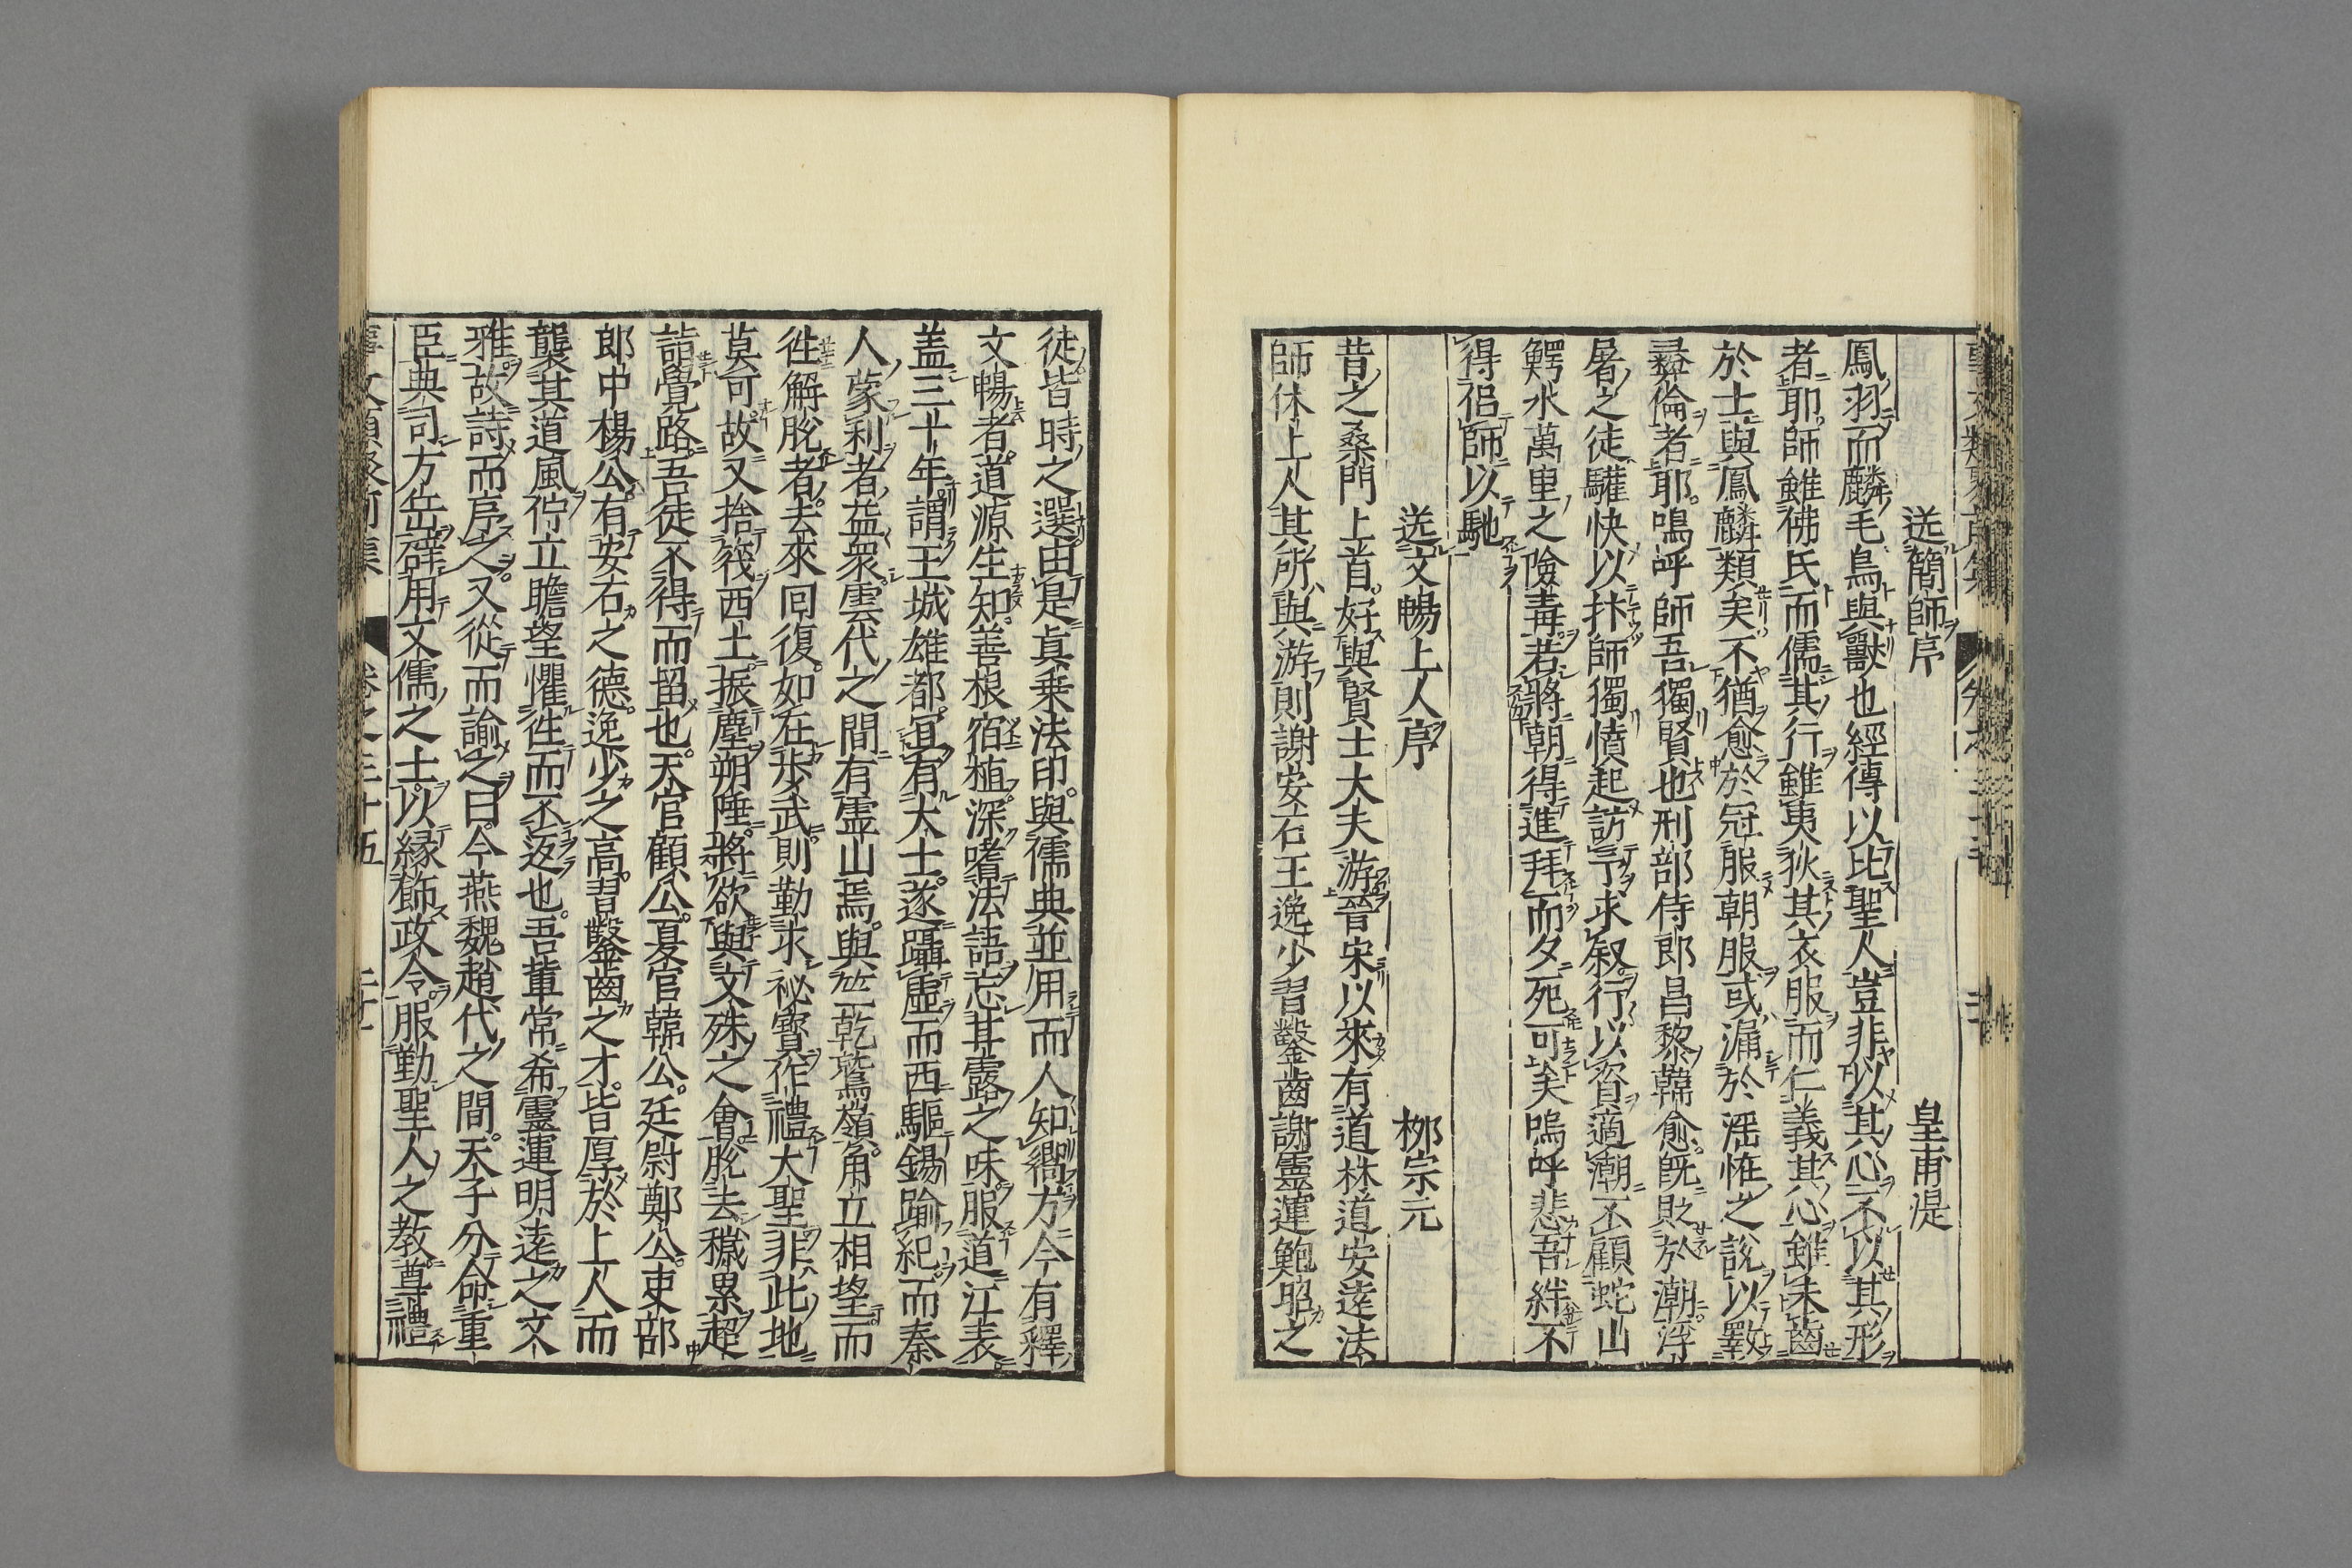 送簡師序　皇甫湜
鳳羽而麟毛鳥與獸也經傳以比聖人豈非以其心不以其形
者耶師雖佛氏而儒其行雖夷狄其衣服而仁義其心雖未齒
於士與鳳麟類矣不猶愈於冠服朝服或漏於滛恠之說以斁
彛倫者耶嗚呼師吾獨賢也刑部侍郎昌黎韓愈旣貶於潮浮
屠之徒驩快以抃師獨憤起訪予求叙行以資適潮不顧蛇山
鰐水萬里之險毒若將朝得進拜而夕死可矣嗚呼悲吾絆不
得侶師以馳
送文暢上人序　栁宗元
昔之桑門上首好與賢士大夫游晉宋以來有道林道安逺法
師休上人其所與游則謝安石王逸少習鑿齒謝靈運鮑昭之
徒皆時之選由是真乗法印與儒典並用而人知嚮方今有釋
文暢者道源生知善根宿植深嗜法語忘其露之味服道江表
盖三十年謂王城雄都宜有大士遂躡虛而西驅錫踰紀而秦
人蒙利者益衆雲代之間有靈山焉與竺乾鷲嶺角立相望而
徃解脫者去來囘復如在步武則勤求祕寳作禮大聖非此地
莫可故又捨筏西土振塵朔陲將欲與文殊之會脫去穢累超
詣覺路吾徒不得而畱也天官顧公夏官韓公廷尉鄭公吏部
郎中楊公有安石之德逸少之高習鑿齒之才皆厚於上人而
襲其道風佇立瞻望懼徃而不返也吾軰常希靈運明逺之文
雅故詩而序之又從而諭之曰今燕魏趙代之間天子分命重
臣典司方岳辟用文儒之士以縁飾政令服勤聖人之教尊禮
卷之三十五